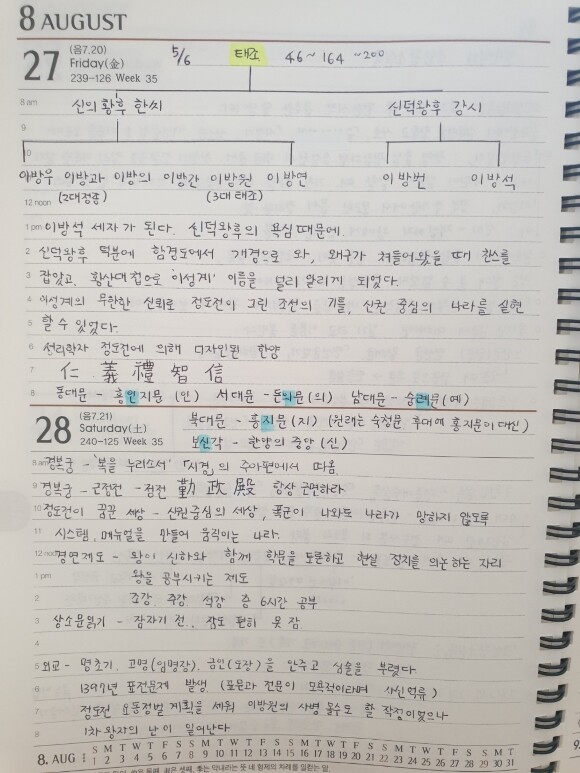 8 AUGUST
27 (음7.20) Friday(金) 239-126 Week 35
5/6 태조 46~164 ~200
8 am 신의황후 한씨 신덕왕후 강시
9
10
이방우 이방과 이방의 이방간 이방원 이방연 이방번 이방석
12 noon (2대정종) (3대 태조)
1 pm 이방석 세자가 된다. 신덕왕후의 욕심때문에.
2 신덕왕후 덕분에 함경도에서 개경으로 와, 왜구가 쳐들어왔을 때 찬스를
3 잡았고, 황산대첩으로 '이성계' 이름을 널리 알리게 되었다.
4 이성계의 무한한 신뢰로 정도전이 그린 조선의 기틀, 신권 중심의 나라를 실현
5 할 수 있었다.
6 성리학자 정도전에 의해 디자인된 한양
7 仁 義 禮 智 信
8 동대문 - 흥인지문 (인) 서대문 - 돈의문 (의) 남대문 - 숭례문 (예)
28 (음7.21) Saturday(土) 240-125 Week 35
북대문 - 홍지문 (지) (원래는 숙청문 후대에 홍지문이 대신)
보신각 - 한양의 중앙 (신)
8 am 경복궁 - '복을 누리소서' 「시경」의 주아편에서 따옴.
9 경복궁 - 근정전 - 정전 勤政殿 항상 근면하라
10 정도전이 꿈꾼 세상 - 신권중심의 세상, 폭군이 나와도 나라가 망하지 않도록
11 시스템, 메뉴얼을 만들어 움직이는 나라.
12 noon 경연제도 - 왕이 신하와 함께 학문을 토론하고 현실 정치를 의논하는 자리
1 pm 왕을 공부시키는 제도
2 조강. 주강 석강 총 6시간 공부
3 상소문읽기 - 잠자기 전, 잠도 편히 못 잠.
4
5 외교 - 명초기. 고명(임명장). 금인(도장)을 안주고 심술을 부렸다.
6 1397년 표전문제 발생. (표문과 전문이 모욕적이라며 사신억류)
7 정도전 요동정벌 계획을 세워 이방원의 사병 몰수도 할 작정이었으나
8 1차 왕자의 난이 일어난다
8. AUG S M T W T F S S M T W T F S S M T W T F S S M T W T F S S M T
1 2 3 4 5 6 7 8 9 10 11 12 13 14 15 16 17 18 19 20 21 22 23 24 25 26 27 28 29 30 31